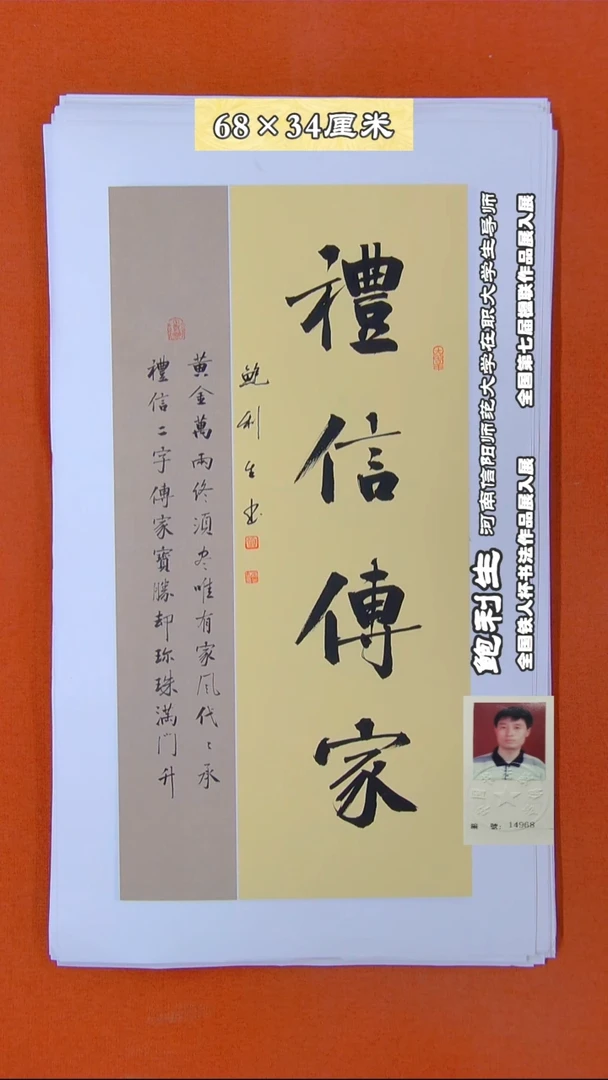 68×34厘米
禮信傳家
鮑利生書
黃金萬兩終須盡唯有家風代〻承
禮信二字傳家寶勝却珎珠滿門升
鲍利生 河南信阳师范大学在职大学生导师
全国铁人杯书法作品展入展 全国第七届楹联作品展入展
編 號: 14968